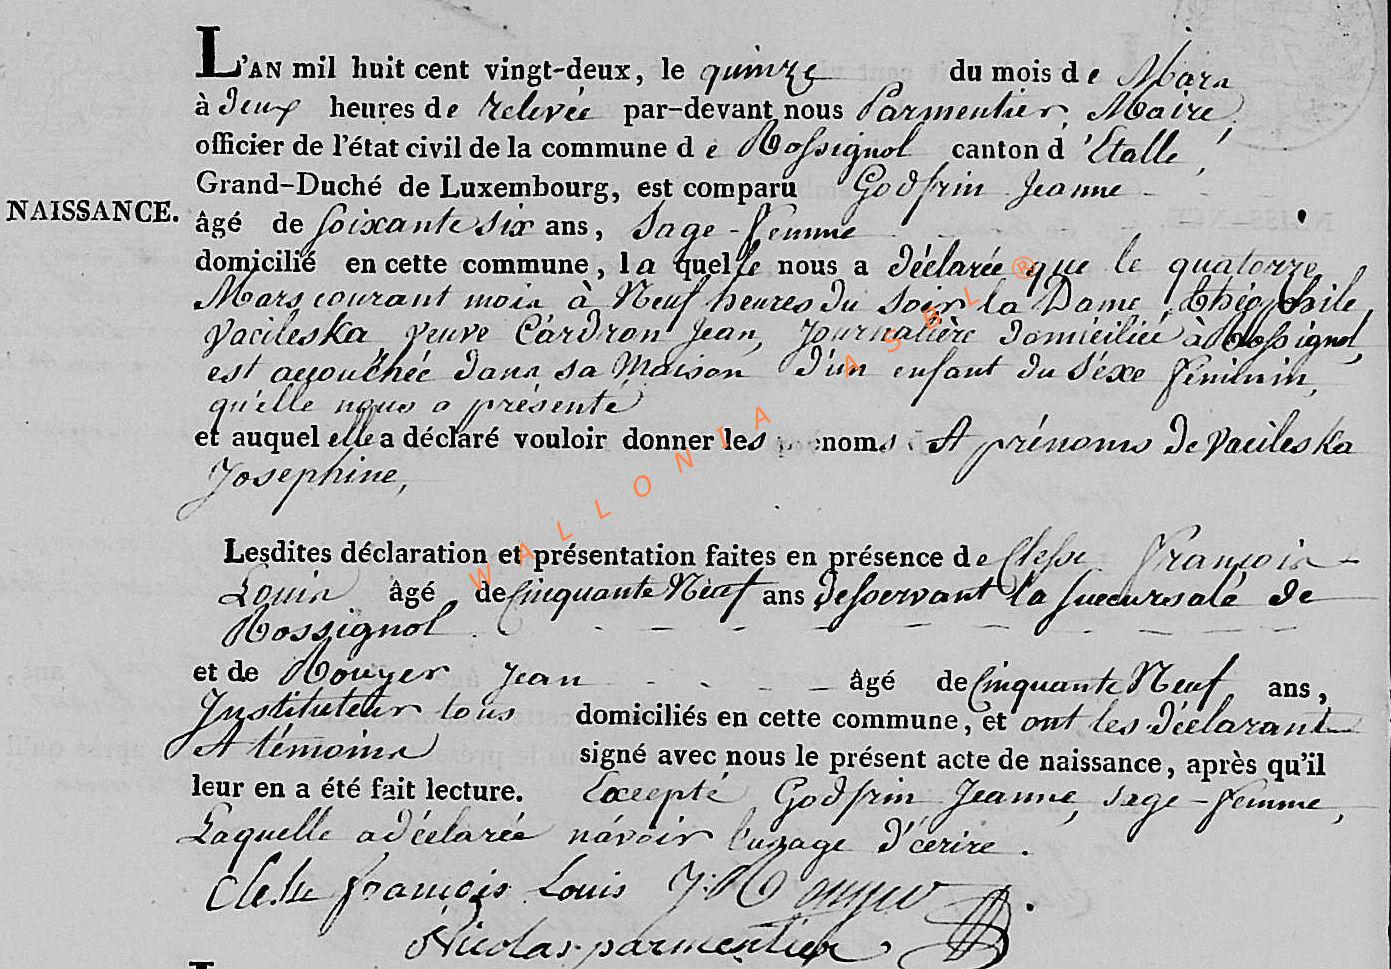 L'AN mil huit cent vingt-deux, le quinze du mois de Mars
à deux heures de relevée par-devant nous Parmentier, Maire,
officier de l'état civil de la commune de Rossignol canton d'Etalle,
Grand-Duché de Luxembourg, est comparu Godfrin Jeanne
NAISSANCE.
âgé de soixante six ans, Sage-femme
domicilié en cette commune, la quelle nous a déclarée que le quatorze
Mars courant mois à Neuf heures du soir la Dame Théophile
Vacileska veuve Cardron Jean, Journalière domiciliée à Rossignol,
est accouchée dans sa Maison d'un enfant du séxe féminin,
qu'elle nous a présenté
et auquel elle a déclaré vouloir donner les noms et prénoms de Vacileska
Josephine,
Lesdites déclaration et présentation faites en présence de Clesse François
Louis âgé de Cinquante Neuf ans desservant la succursale de
Rossignol
et de Rouyer Jean âgé de Cinquante Neuf ans,
Instituteur tous domiciliés en cette commune, et ont les déclarant
et témoins signé avec nous le présent acte de naissance, après qu'il
leur en a été fait lecture. Excepté Godfrin Jeanne, sage-femme,
Laquelle a déclarée n'avoir l'usage d'écrire.
Clesse françois Louis J: Rouyer
Nicolas parmentier
WALLONIA ASBL ®